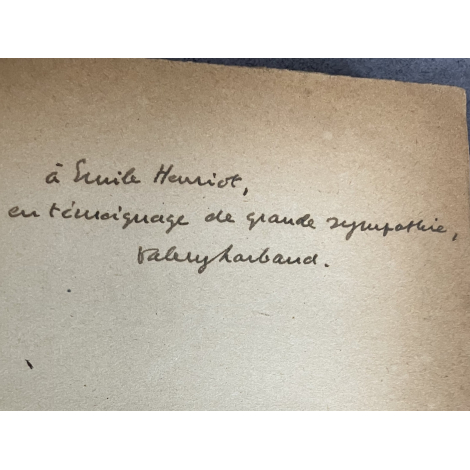 à Emile Henriot,
en témoignage de grande sympathie,
Valery Larbaud.